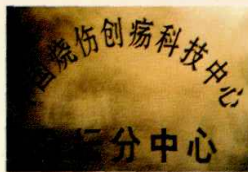 烧伤创疡科技中心
分中心